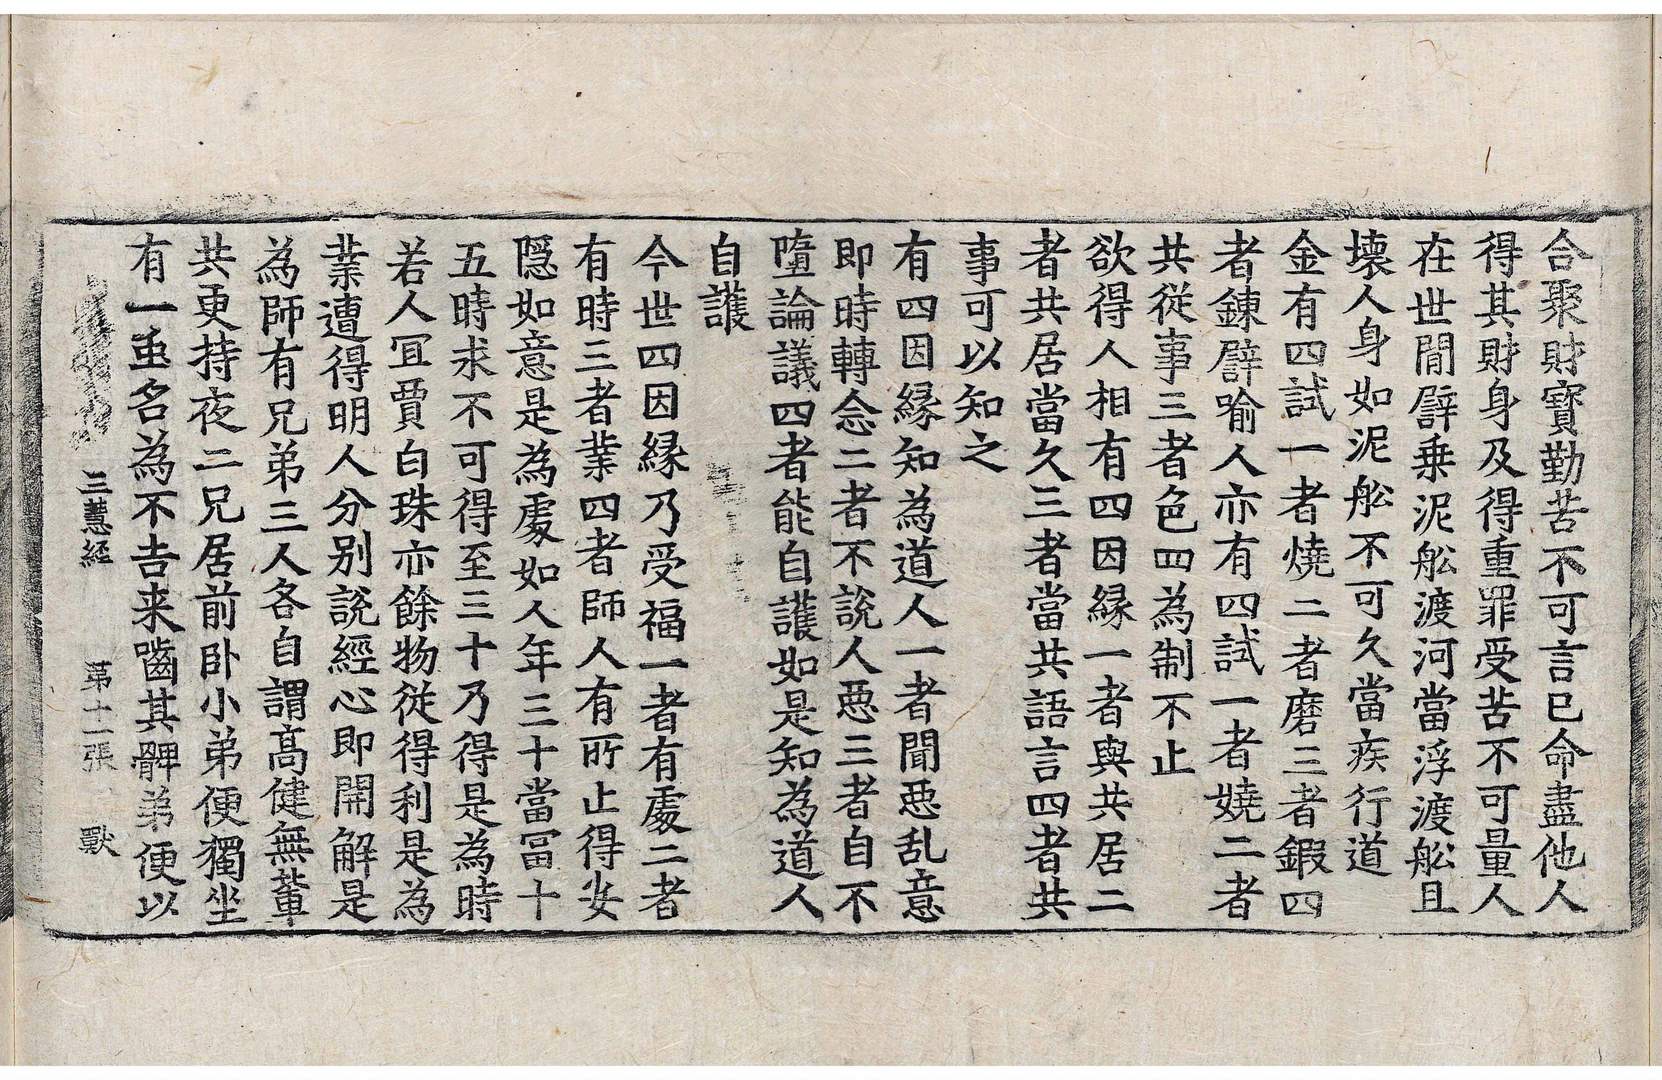 合聚財寶勤苦不可言已命盡他人
得其財身及得重罪受苦不可量人
在世間譬乗泥舩渡河當浮渡舩且
壊人身如泥舩不可久當疾行道
金有四試一者燒二者磨三者鍜四
者鍊譬喻人亦有四試一者嬈二者
共従事三者色四為制不止
欲得人相有四因緣一者與共居二
者共居當久三者當共語言四者共
事可以知之
有四因緣知為道人一者聞惡乱意
即時轉念二者不說人惡三者自不
墮論議四者能自護如是知為道人
自護
今世四因緣乃受福一者有處二者
有時三者業四者師人有所止得安
隱如意是為處如人年三十當冨十
五時求不可得至三十乃得是為時
若人冝賈白珠亦餘物從得利是為
業遭得明人分別說經心即開解是
為師有兄弟三人各自謂髙健無軰
共更持夜二兄居前卧小弟便獨坐
有一虫名為不吉来嚙其髀弟便以
三慧經 第十一張 獸